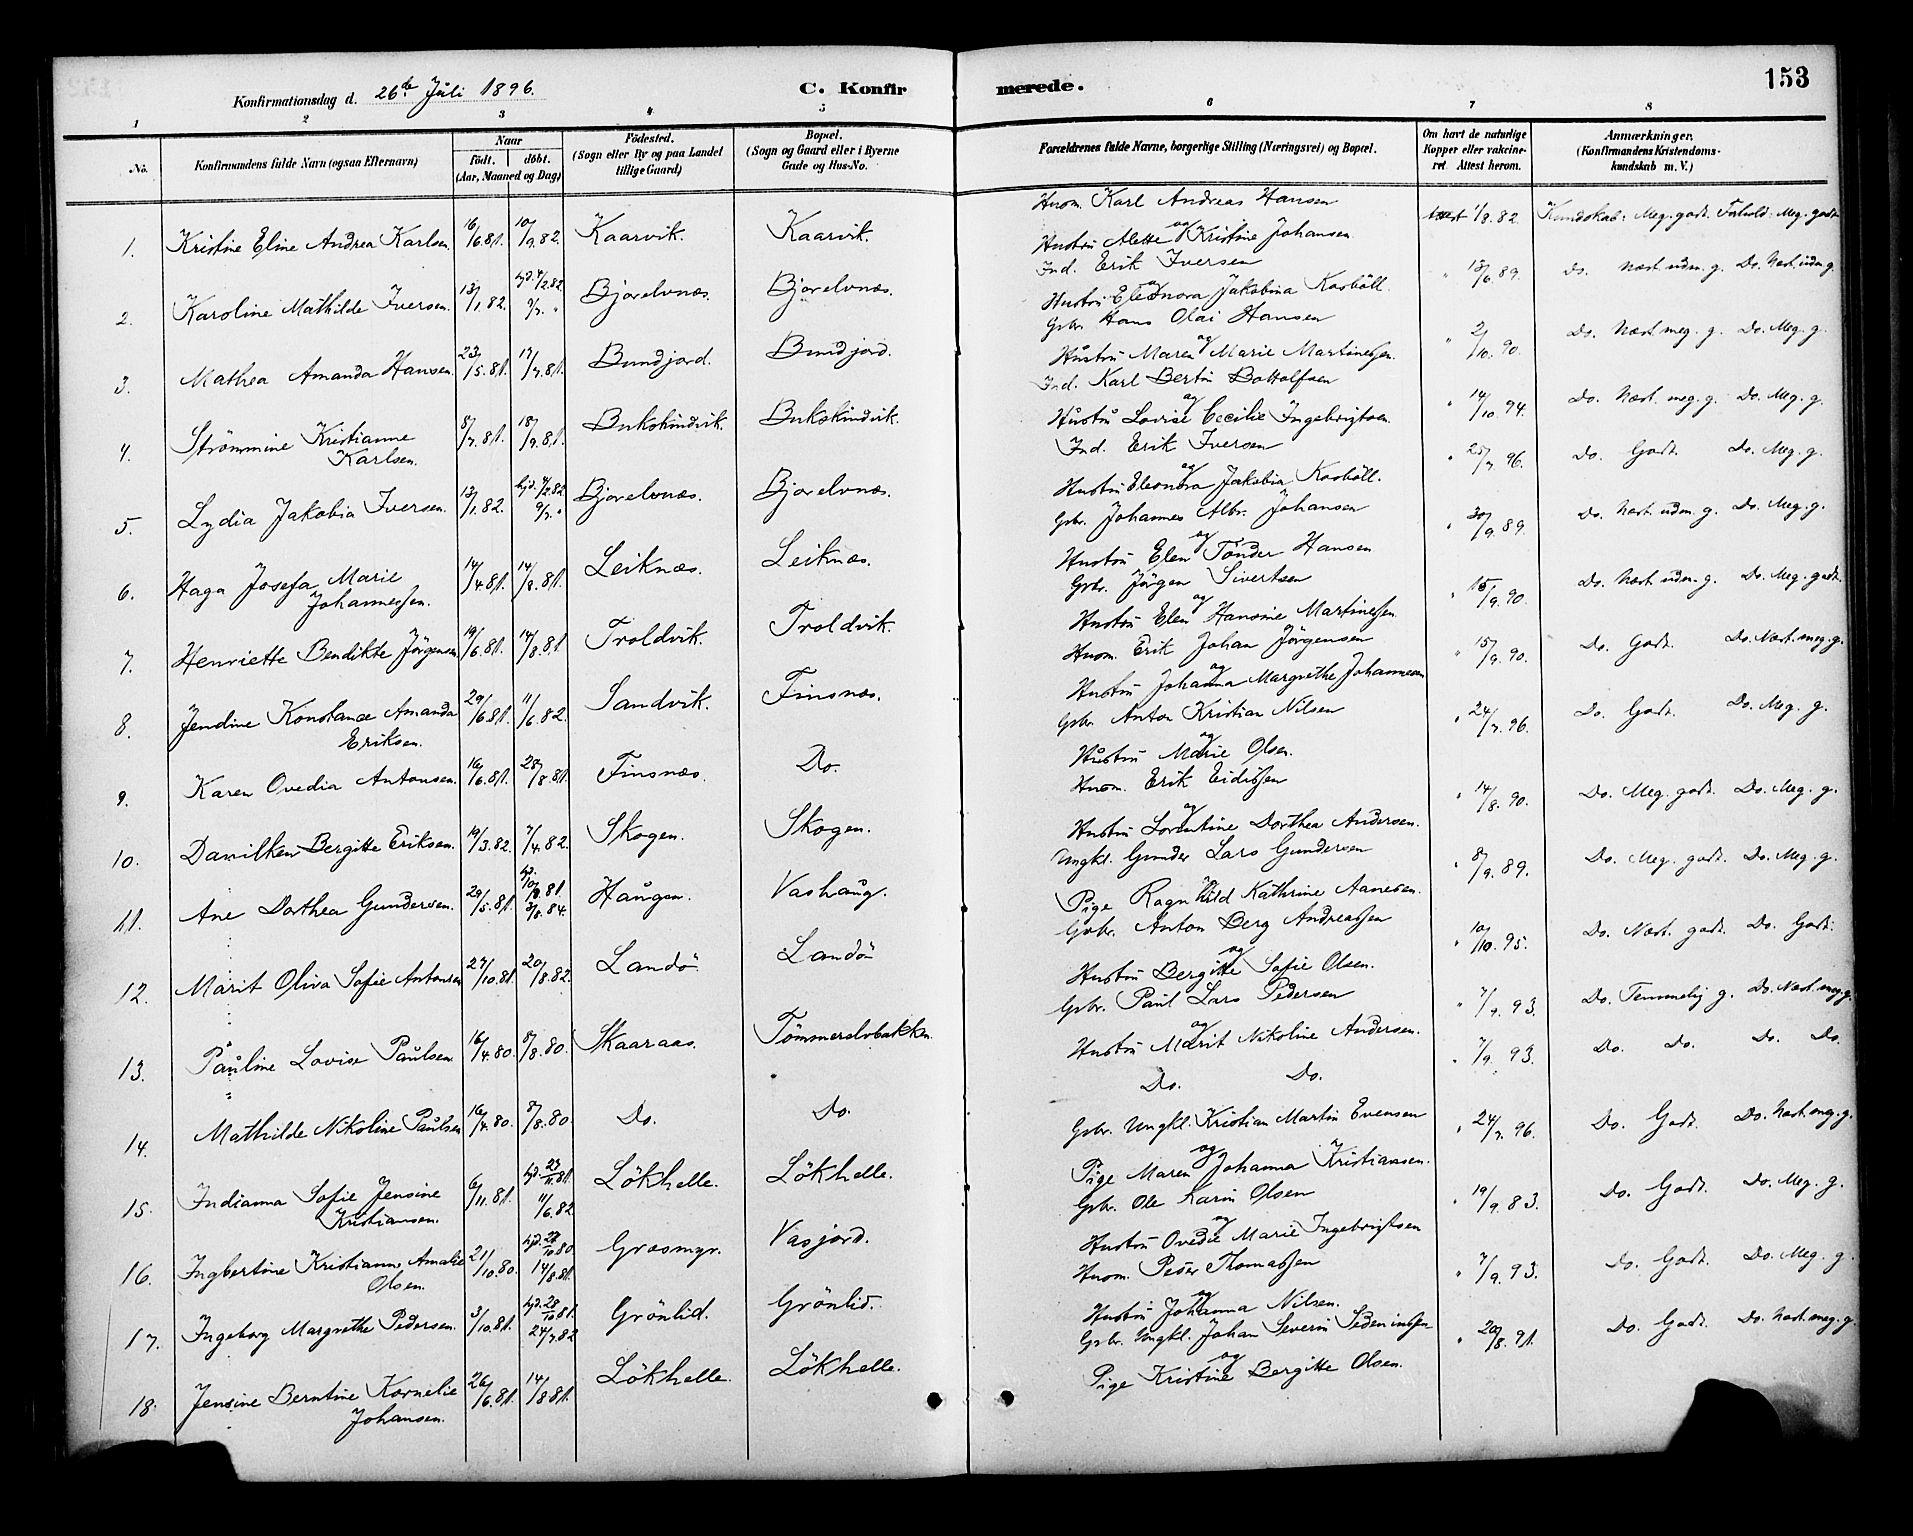 Konfirmationsdag d. 26de Juli 1896. C. Konfirmerede. 153
1 2 3 4 5 6 7 8
No. Konfirmandens fulde Navn (ogsaa Efternavn) Naar födt. döbt. (Aar, Maaned og Dag) Födested. (Sogn eller By og paa Landet tillige Gaard) Bopæl. (Sogn og Gaard eller i Byerne Gade og Hus-No. Forældrenes fulde Navne, borgerlige Stilling (Næringsvei) og Bopæl. Om havt de naturlige Kopper eller vakcineret. Attest herom. Anmærkninger. (Konfirmandens Kristendomskundskab m. V.)
1. Kristine Eline Andrea Karlsen 16/6.81. 10/9.82. Kaarvik. Kaarvik. Husm. Karl Andreas Hansen og Hustru Alette Kristine Johansen Attest 1/8.82. Kundskab: Meg. godt. Forhold: Meg. godt.
2. Karoline Mathilde Iversen. 13/1.82. hjd. 4/2.82. 9/7. " Bjorelvnæs. Bjorelvnæs. Ind. Erik Iversen og Hustru Eleonora Jakobina Kasböll. " 13/6.89. Do. Næst. udm. g. Do. Næst. udm. g.
3. Mathea Amanda Hansen. 23/5.81. 17/7.81. Bundjord. Bundjord. Gbr. Hans Olai Hansen og Hustru Maren Marie Martinessen. " 2/10.90. Do. Næst meg. g. Do. Meg. g.
4. Strömmine Kristianne Karlsen. 8/7.81. 18/9.81. Bukskindvik. Bukskindvik. Ind. Karl Bertin Bottolfsen og Hustru Lovise Cecilie Ingebrigtsen " 14/10.94. Do. Næst. meg. g. Do. Meg. g.
5. Lydia Jakobia Iversen. 13/1.82. hjd. 4/2.82. 9/7. " Bjorelvnæs. Bjorelvnæs. Ind. Erik Iversen og Hustru Eleonora Jakobia Kasböll. " 25/7.96. Do. Godt. Do. Meg. g.
6. Haga Josefa Marie Johannessen. 14/4.81. 14/8.81. Leiknæs. Leiknæs. Gbr. Johannes Albr. Johansen og Hustru Elen Tönder Hansen " 30/9.89. Do. Næst. udm. g. Do. Meg. g.
7. Henriette Bendikte Jörgensen 19/6.81. 14/8.81. Troldvik. Troldvik. Gbr. Jörgen Sivertsen og Hustru Elen Hansine Martinessen " 15/9.90. Do. Næst udm. g. Do. Meg. godt.
8. Jendine Konstance Amanda Eriksen. 29/6.81. 11/6.82. Sandvik. Finsnæs. Husm. Erik Johan Jörgensen og Hustru Johanna Margrethe Johannesen " 15/9.90. Do. Godt. Do. Næst. meg. g.
9. Karen Ovedia Antonsen. 16/6.81. 28/8.81. Finsnæs. Do. Gbr. Anton Kristian Nilsen og Hustru Marie Olsen. " 24/7.96. Do. Godt. Do. Meg. g.
10. Danilken Bergitte Eriksen. 19/3.82. 7/4.82. Skogen. Skogen. Husm. Erik Eidissen og Hustru Lorentine Dorthea Andersen. " 14/8.90. Do. Meg. godt. Do. Meg. g.
11. Ane Dorthea Gundersen. 29/5.81. hjd. 10/8.81 3/8.84. Haugen. Vashaug. Ungkl. Gunder Lars Gundersen og Pige Ragnhild Kathrine Aanesen. " 8/9.89. Do. Meg. godt. Do. Meg. g.
12. Marit Oliva Sofie Antonsen 27/10.81. 20/8.82. Landö. Landö. Gbr. Anton Berg Andreassen og Hustru Bergitte Sofie Olsen. " 10/10.95. Do. Næst. godt. Do. Godt.
13. Pauline Lovise Paulsen. 16/4.80. 8/8.80. Skaaraas. Tömmerelvbakken. Gbr. Paul Lars Pedersen og Hustru Marit Nikoline Andersen. " 7/9.93. Do. Temmelig g. Do. Næst. meg. g.
14. Mathilde Nikoline Paulsen 16/4.80. 8/8.80 Do. Do. Do. Do. " 7/9.93. Do. Do. Do. Do.
15. Indianna Sofie Jensine Kristiansen. 6/11.81. hjd. 27/11.81. 11/6.82 Lökhelle. Lökhelle. Gbr. Ungkl. Kristian Martin Evensen og Pige Maren Johanna Kristiansen. " 24/7.96. Do. Godt. Do. Næst. meg. g.
16. Ingbertine Kristianne Amalie Olsen. 21/10.80. hjd. 28/10.80. 14/8.81. Græsmyr. Vasjord. Gbr. Ole Karin Olsen og Hustru Ovedie Marie Ingebrigtsen " 19/9.83. Do. Godt. Do. Meg. g.
17. Ingeborg Margrethe Pedersen. 3/10.81. hjd. 28/10.81. 24/7.82 Grönlid. Grönlid. Husm. Peder Thomassen og Hustru Johanna Nilsen. " 7/9.93. Do. Godt. Do. Meg. g.
18. Jensine Berntine Kornelie Johansen. 26/6.81. 14/8.81. Lökhelle. Lökhelle. Gbr. Ungkl. Johan Severin og Pige Kristine Bergitte Olsen. " 20/8.91. Do. Godt. Do. Næst. meg. g.